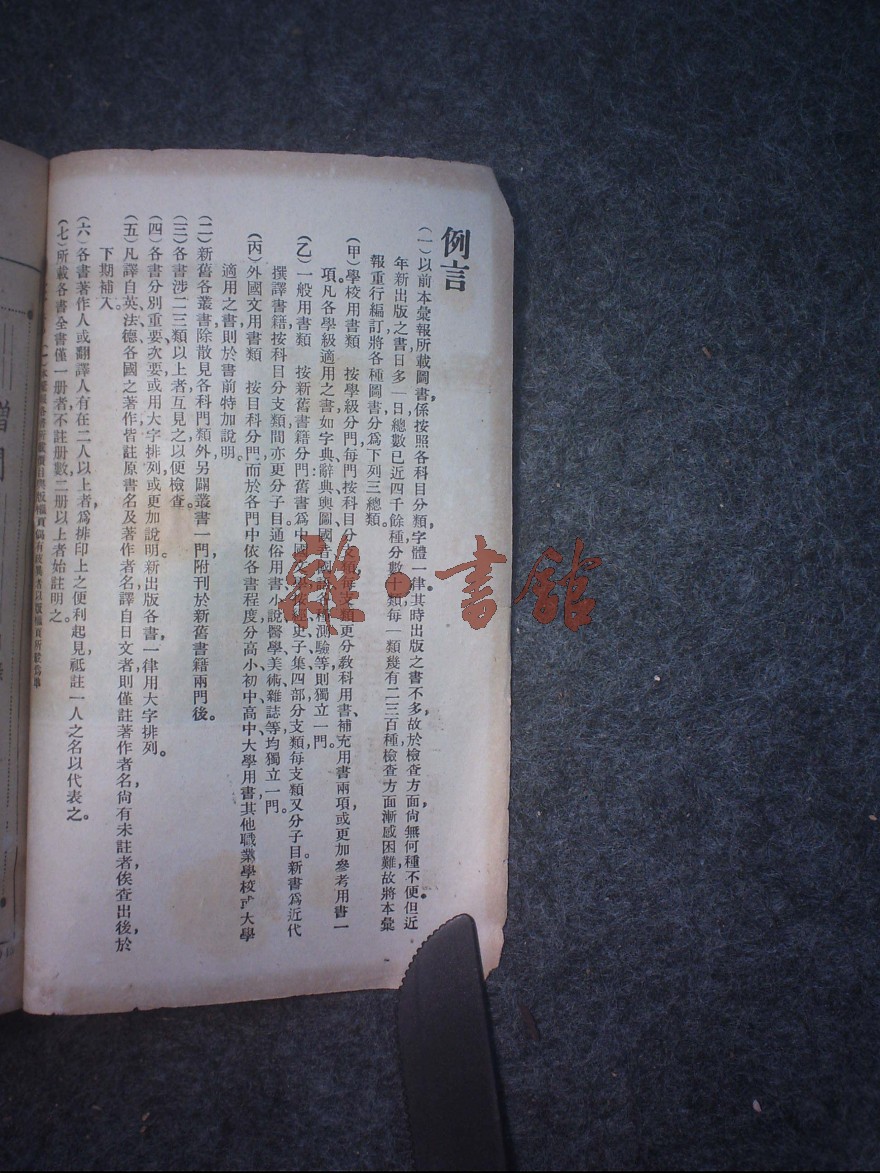 例言
(一)以前本彙報所載圖書,係按照各科目分類,字體一律。其時出版之書不多,故於檢查方面,尙無何種不便。但近
年新出版之書日多一日,總數已近四千餘種,分數十類,每一類幾有二三百種,檢查方面,漸感困難,故將本彙
報重行編訂,將各種圖書分爲下列三總類。
(甲)學校用書類 按學級分門,每門按科目分類,每支類更分敎科用書、補充用書兩項,或更加參考用書一
項。凡各學級適用之書,如字典、辭典、輿圖、國音國語、各種測驗等,則獨立一門。
(乙)一般用書類 按新舊書籍分門:舊書爲中國文學,按經史子集四部分支類,每支類又分子目。新書爲近代
撰譯書籍,按科目分支類,間亦更分子目。通俗用書、小說、醫學、美術、雜誌等,均獨立一門。
(丙)外國文用書類 按目科分門,而於各門中依各書程度,分高小、初中、高中、大學用書。其他職業學校或大學
適用之書,則於書前特加說明。
(二)新舊各叢書,除散見各科門類外,另闢叢書一門,附刊於新舊書籍兩門後。
(三)各書涉二三類以上者,互見之,以便檢查。
(四)各書分別重要次要,或用大字排列,或更加說明。新出版各書,一律用大字排列。
(五)凡譯自英、法、德各國之著作,皆註原書名及著作者名,譯自日文者,則僅註著作者名,尙有未註者,俟查出後,於
下期補入。
(六)各書著作人或翻譯人有在二人以上者,爲排印上之便利起見,祇註一人之名以代表之。
(七)所載各書全書僅一册者,不註册數,二册以上者始註明之。
雜·書館